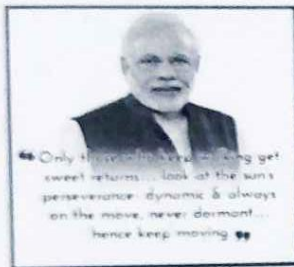 ❝ Only those who keep walking get
sweet returns... look at the sun's
perseverance: dynamic & always
on the move, never dormant...
hence keep moving ❞